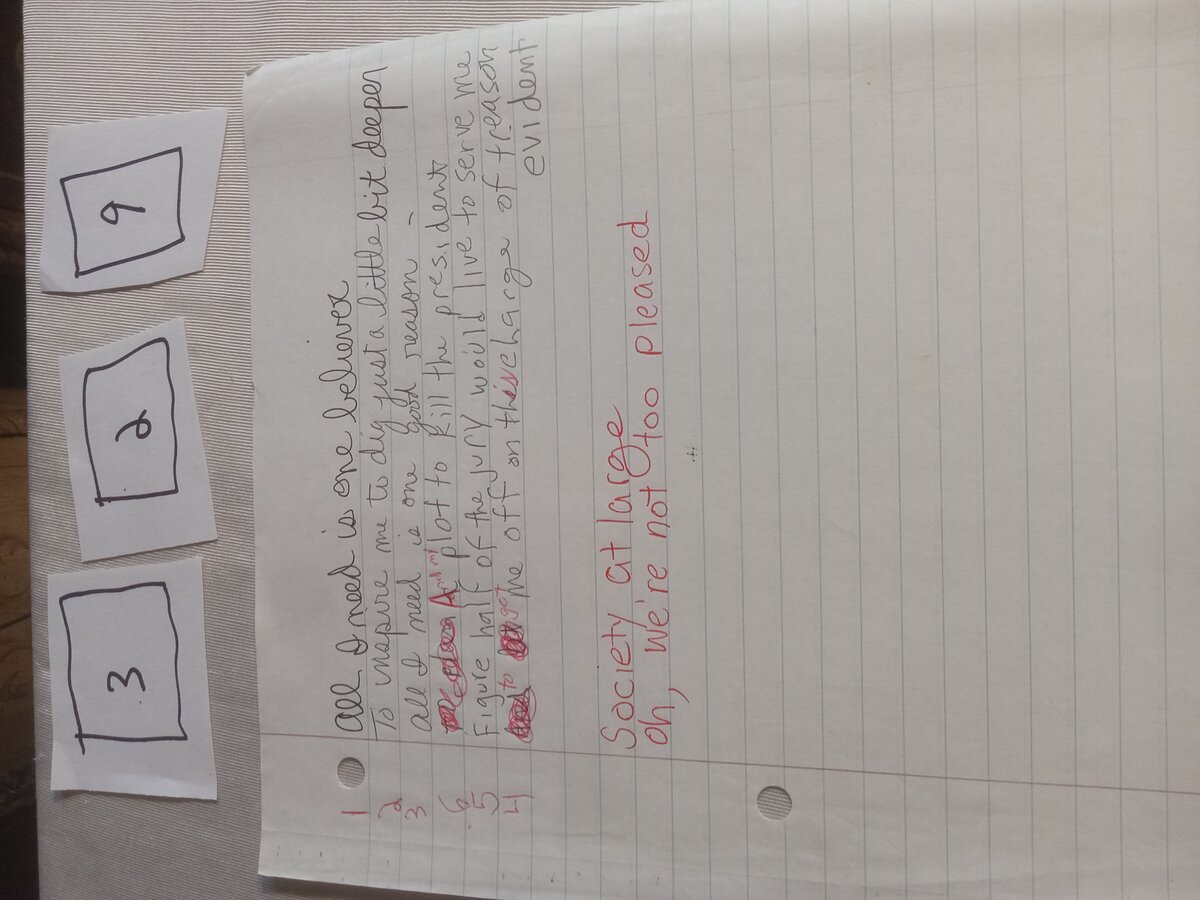 3 2 9
1 All I need is one believer
2 To inspire me to dig just a little bit deeper
3 all I need is one good reason -
6 And my plot to kill the president
5 Figure half of the jury would live to serve me
4 to got me off on this charge of treason
evident
Society at large
oh, we're not too pleased